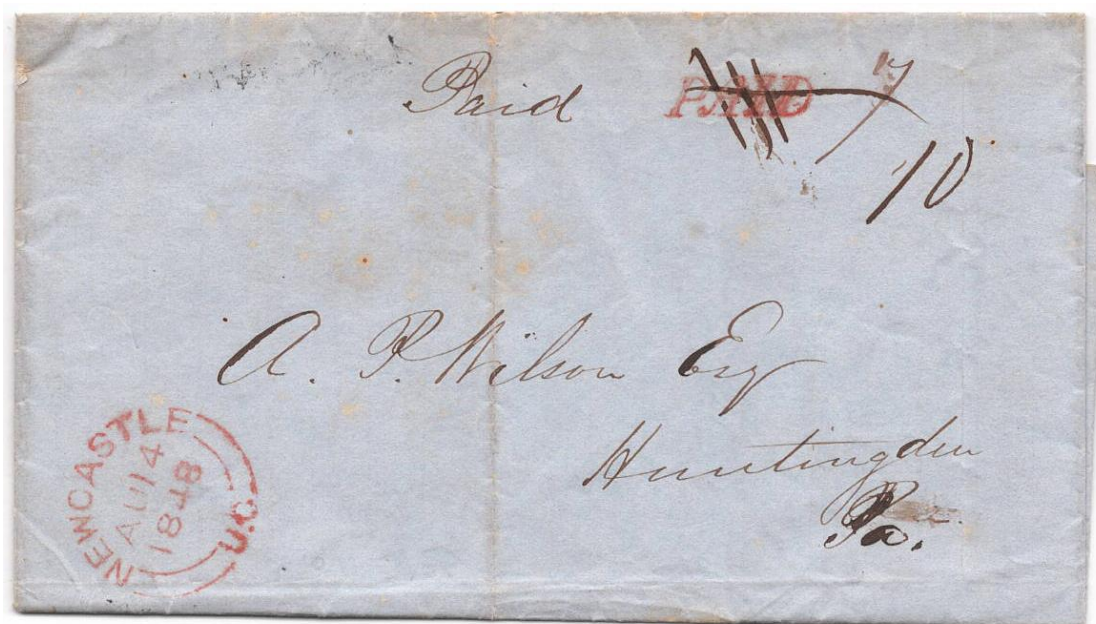 Paid PAID 7
10
A. P. Wilson Esq
Huntingdon
Pa.
NEWCASTLE U.C.
AU 14
1848